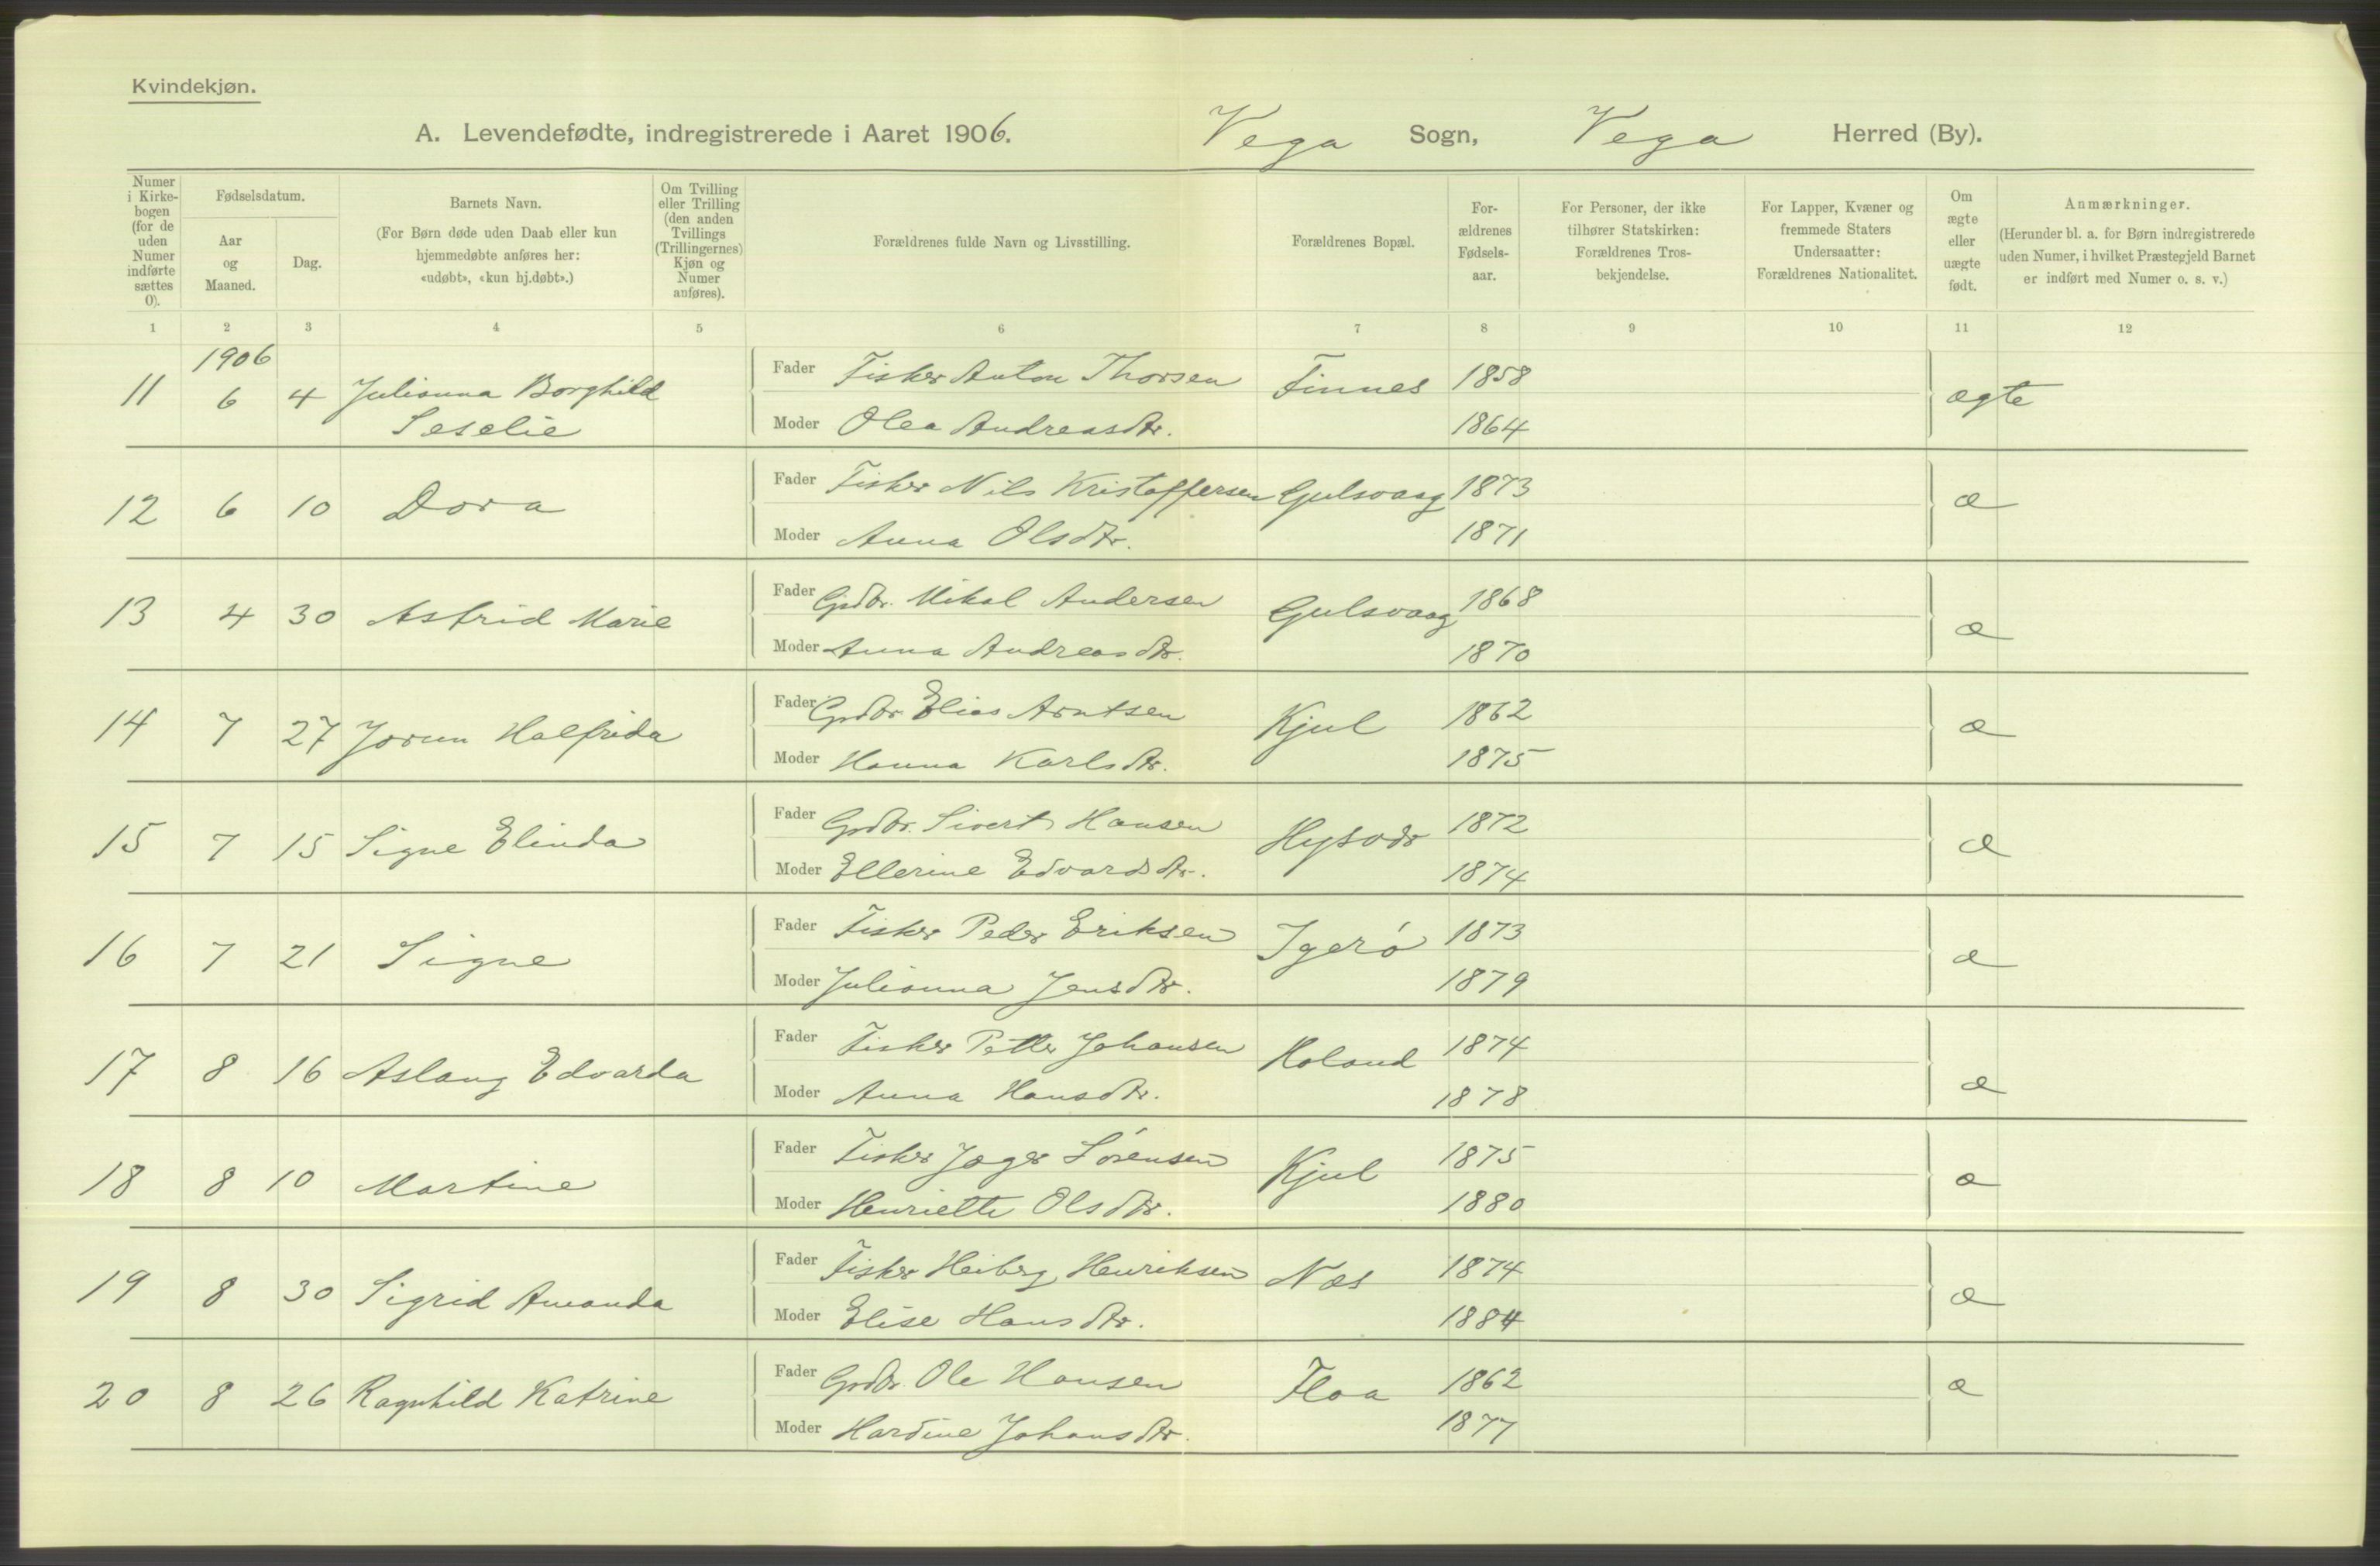 Kvindekjøn.
A. Levendefødte, indregistrerede i Aaret 1906. Vega Sogn, Vega Herred (By).
Numer i Kirkebogen (for de uden Numer indførte sættes 0).
Fødselsdatum.
Aar og Maaned.
Dag.
Barnets Navn.
(For Børn døde uden Daab eller kun hjemmedøbte anføres her: «udøbt», «kun hj.døbt».)
Om Tvilling eller Trilling (den anden Tvillings (Trillingernes) Kjøn og Numer anføres).
Forældrenes fulde Navn og Livsstilling.
Forældrenes Bopæl.
For-ældrenes Fødsels-aar.
For Personer, der ikke tilhører Statskirken: Forældrenes Tros-bekjendelse.
For Lapper, Kvæner og fremmede Staters Undersaatter: Forældrenes Nationalitet.
Om ægte eller uægte født.
Anmærkninger.
(Herunder bl. a. for Børn indregistrerede uden Numer, i hvilket Præstegjeld Barnet er indført med Numer o. s. v.)
1 2 3 4 5 6 7 8 9 10 11 12
1906
11 6 4 Julianna Borghild Seselie Fader Fisker Anton Thorsen Finnes 1858 ægte
Moder Olea Andreasdtr. 1864
12 6 10 Dora Fader Fisker Nils Kristoffersen Gulsvaag 1873 æ
Moder Anna Olsdtr. 1871
13 4 30 Astrid Marie Fader Grdbr. Mikal Andersen Gulsvaag 1868 æ
Moder Anna Andreasdtr. 1870
14 7 27 Jorun Halfrida Fader Grdbr. Elias Arntsen Kjul 1862 æ
Moder Hanna Karlsdtr. 1875
15 7 15 Signe Elinda Fader Grdbr. Sivert Hansen 1872 æ
Moder Ellerine Edvardsdtr. 1874
16 7 21 Signe Fader Fisker Peder Eriksen Igerø 1873 æ
Moder Julianna Jensdtr. 1879
17 8 16 Aslaug Edvarda Fader Fisker Petter Johansen Holand 1874 æ
Moder Anna Hansdtr. 1878
18 8 10 Martine Fader Fisker Jæger Sørensen Kjul 1875 æ
Moder Henriette Olsdtr. 1880
19 8 30 Sigrid Amanda Fader Fisker Heiberg Henriksen Næs 1874 æ
Moder Elise Hansdtr. 1884
20 8 26 Ragnhild Katrine Fader Grdbr. Ole Hansen Floa 1862 æ
Moder Hardine Johansdtr. 1877